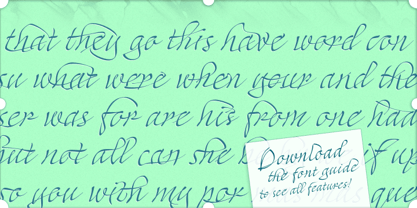 that they go this have word con
su what were when your and the
ser was for are his from one had
but not all can she if up
so you with my por que
Download
the font guide
to see all features!